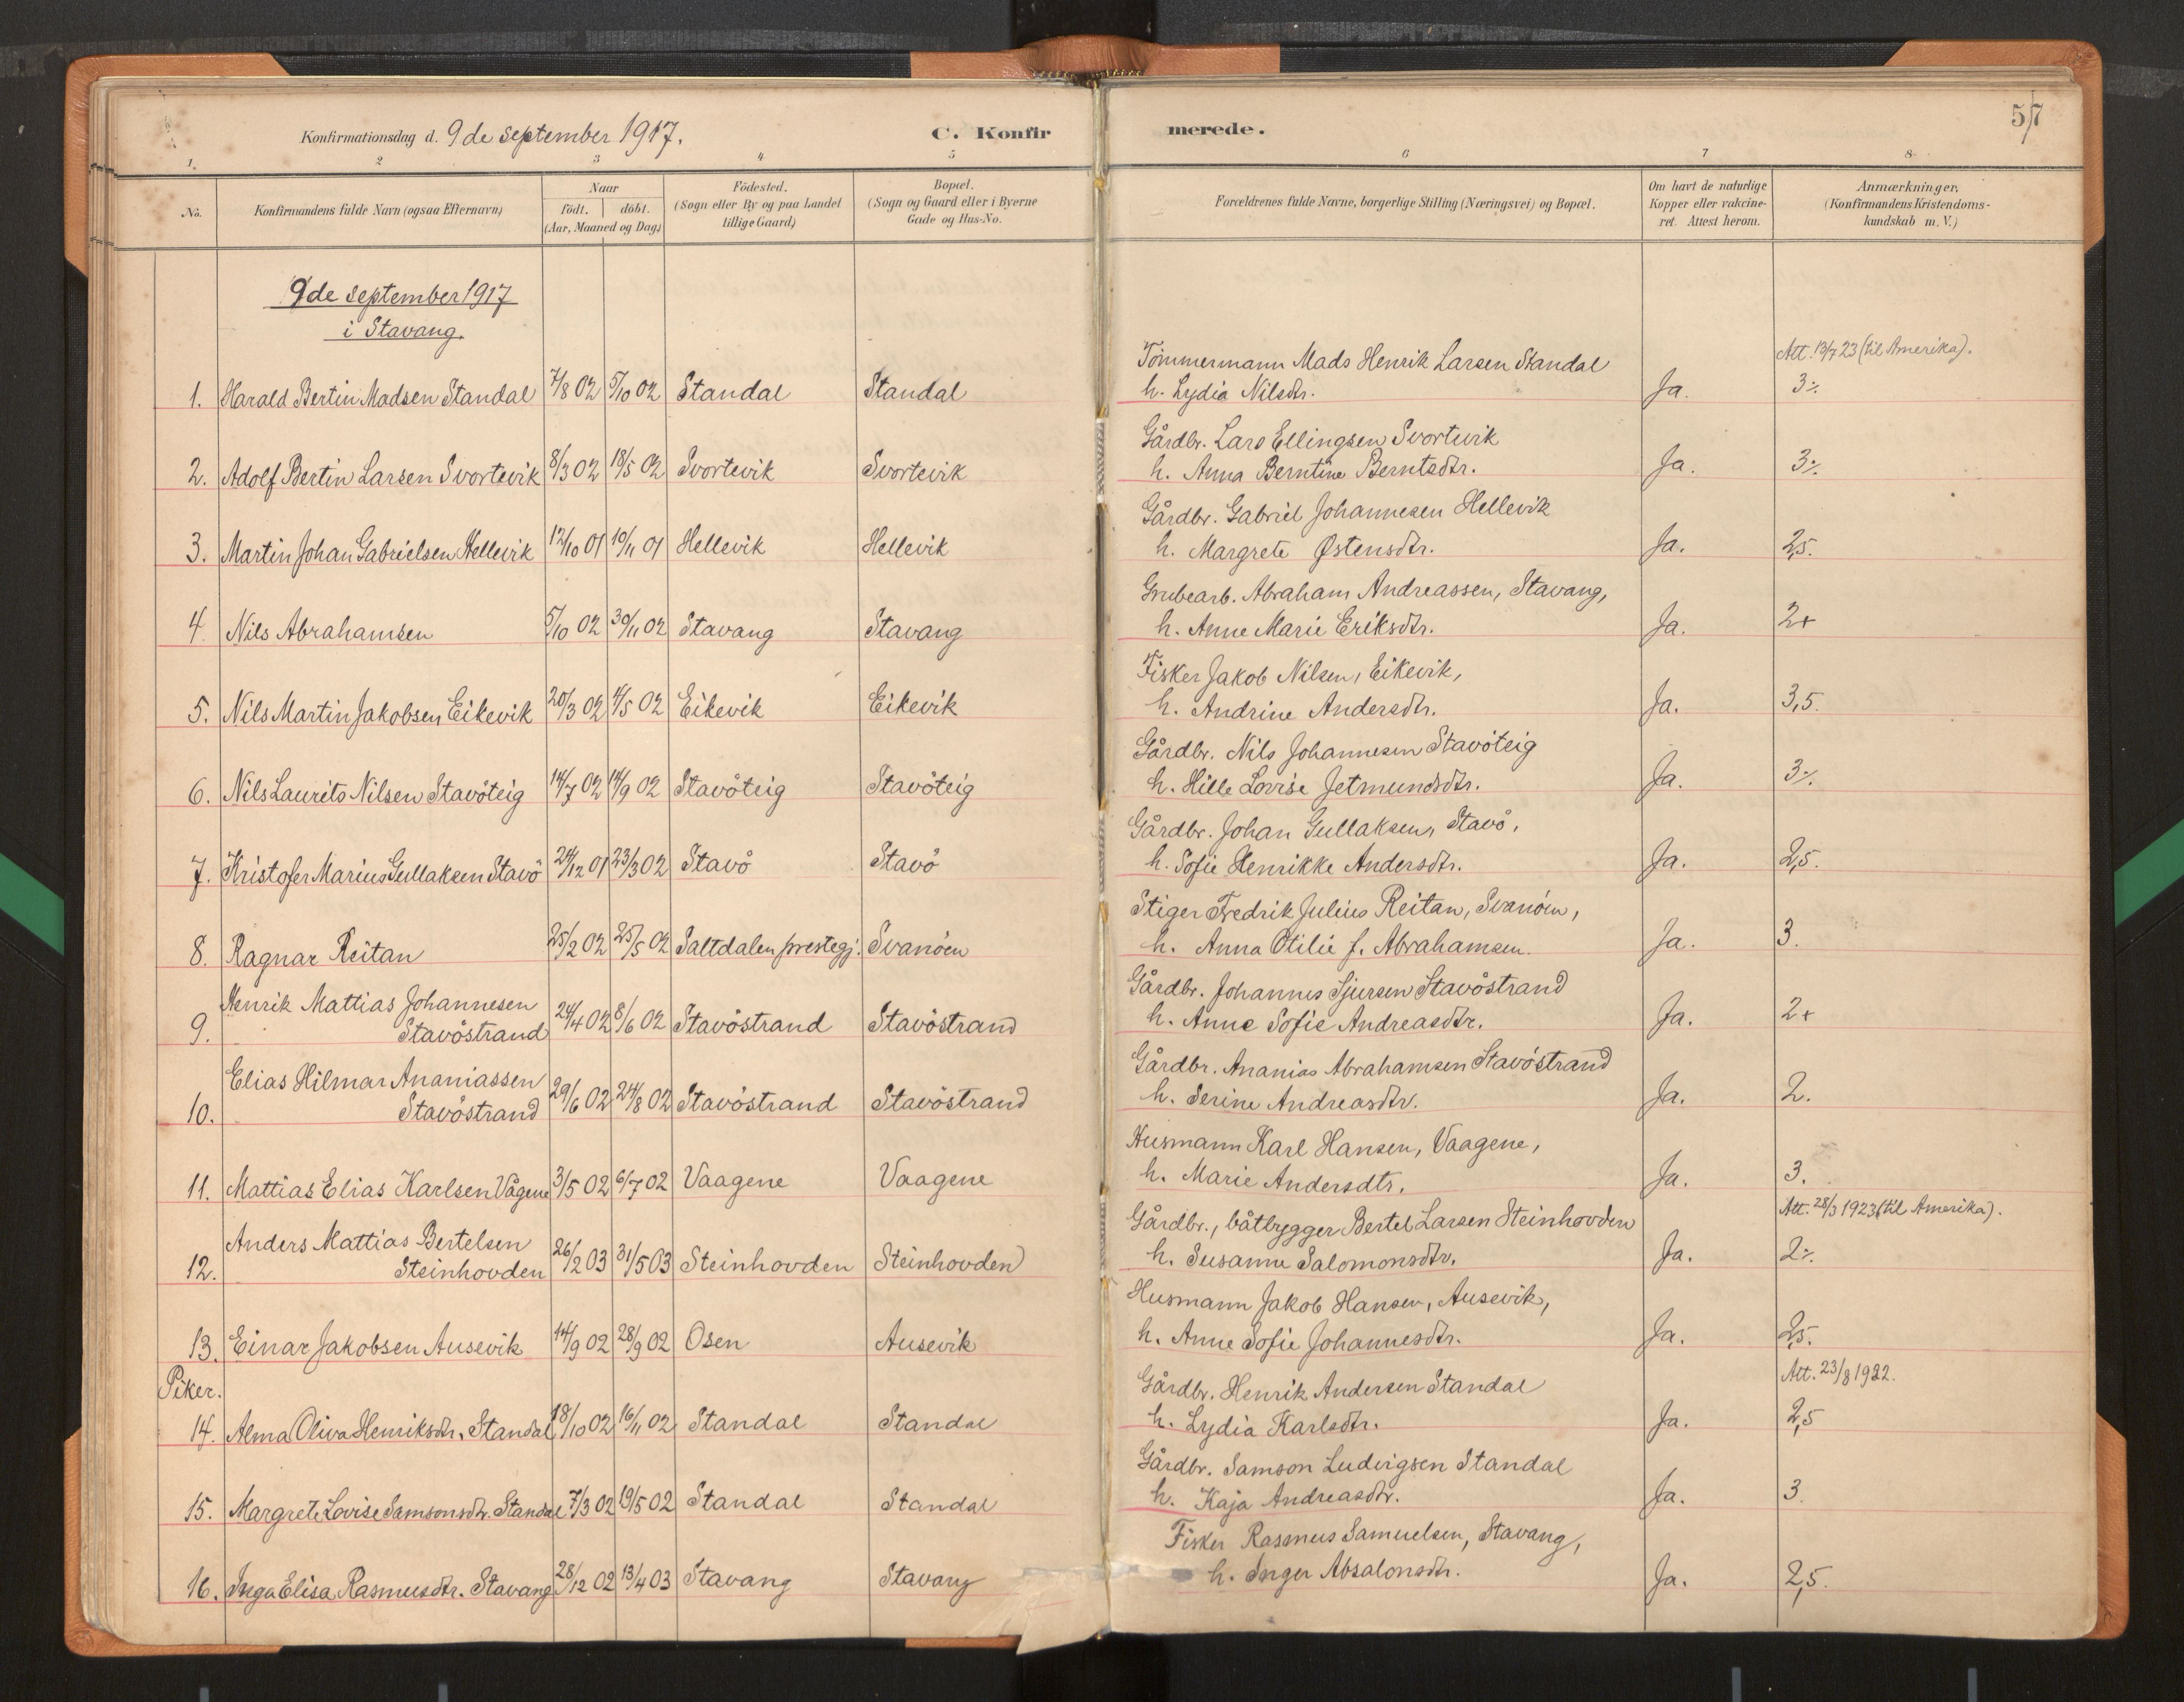 57
Konfirmationsdag d. 9 de september 1917.
C. Konfir
merede.
1. 2 3 4 5 6 7 8
No.
Konfirmandens fulde Navn (ogsaa Efternavn)
Naar
födt. döbt.
(Aar, Maaned og Dag)
Födested.
(Sogn eller By og paa Landet
tillige Gaard)
Bopæl.
(Sogn og Gaard eller i Byerne
Gade og Hus-No.
Forældrenes fulde Navne, borgerlige Stilling (Næringsvei) og Bopæl.
Om havt de naturlige
Kopper eller vakcine-
ret. Attest herom.
Anmærkninger.
(Konfirmandens Kristendoms-
kundskab m. V.)
9de september 1917
i Stavang.
Tömmermann Mads Henrik Larsen Standal Att. 13/7 23 (til Amerika).
1. Harald Bertin Madsen Standal 7/8 02 5/10 02 Standal Standal h. Lydia Nilsdtr. Ja. 3÷
Gårdbr. Lars Ellingsen Svortevik
2. Adolf Bertin Larsen Svortevik 8/3 02 18/5 02 Svortevik Svortevik h. Anna Berntine Berntsdtr. Ja. 3÷
Gårdbr. Gabriel Johannesen Hellevik
3. Martin Johan Gabrielsen Hellevik 12/10 01 10/11 01 Hellevik Hellevik h. Margrete Østensdtr. Ja. 2,5.
Grubearb. Abraham Andreassen, Stavang,
4. Nils Abrahamsen 5/10 02 30/11 02 Stavang Stavang h. Anne Marie Eriksdtr. Ja. 2+
Fisker Jakob Nilsen, Eikevik,
5. Nils Martin Jakobsen Eikevik 20/3 02 4/5 02 Eikevik Eikevik h. Andrine Andersdtr. Ja. 3,5.
Gårdbr. Nils Johannesen Stavöteig
6. Nils Laurits Nilsen Stavöteig 14/7 02 14/9 02 Stavöteig Stavöteig h. Hille Lovise Jetmundsdtr. Ja. 3÷
Gårdbr. Johan Gullaksen, Stavö,
7. Kristofer Marius Gullaksen Stavö 24/12 01 23/3 02 Stavö Stavö h. Sofie Henrikke Andersdtr. Ja. 2,5.
Stiger Fredrik Julius Reitan, Svanöen,
8. Ragnar Reitan 25/2 02 25/5 02 Saltdalen prestegj. Svanöen h. Anna Otilie f. Abrahamsen. Ja. 3.
Henrik Mattias Johannesen Gårdbr. Johannes Sjursen Stavöstrand
9. Stavöstrand 24/4 02 8/6 02 Stavöstrand Stavöstrand h. Anne Sofie Andreasdtr. Ja. 2+
Elias Hilmar Ananiassen Gårdbr. Ananias Abrahamsen Stavöstrand
10. Stavöstrand 29/6 02 24/8 02 Stavöstrand Stavöstrand h. Serine Andreasdtr. Ja. 2.
Husmann Karl Hansen, Vaagene,
11. Mattias Elias Karlsen Vågene 3/5 02 6/7 02 Vaagene Vaagene h. Marie Andersdtr. Ja. 3.
Anders Mattias Bertelsen Gårdbr., båtbygger Bertel Larsen Steinhovden Att. 28/3 1923 (til Amerika).
12. Steinhovden 26/2 03 31/5 03 Steinhovden Steinhovden h. Susanne Salomonsdtr. Ja. 2÷
Husmann Jakob Hansen, Ausevik,
13. Einar Jakobsen Ausevik 14/9 02 28/9 02 Osen Ausevik h. Anne Sofie Johannesdtr. Ja. 2,5.
Piker. Gårdbr. Henrik Andersen Standal Att. 23/8 1922.
14. Alma Oliva Henriksdtr. Standal 18/10 02 16/11 02 Standal Standal h. Lydia Karlsdtr. Ja. 2,5
Gårdbr. Samson Ludvigsen Standal
15. Margrete Lovise Samsonsdtr. Standal 7/3 02 19/5 02 Standal Standal h. Kaja Andreasdtr. Ja. 3.
Fisker Rasmus Samuelsen, Stavang,
16. Inga Elisa Rasmusdtr. Stavang 28/12 02 13/4 03 Stavang Stavang h. Inger Absalonsdtr. Ja. 2,5.